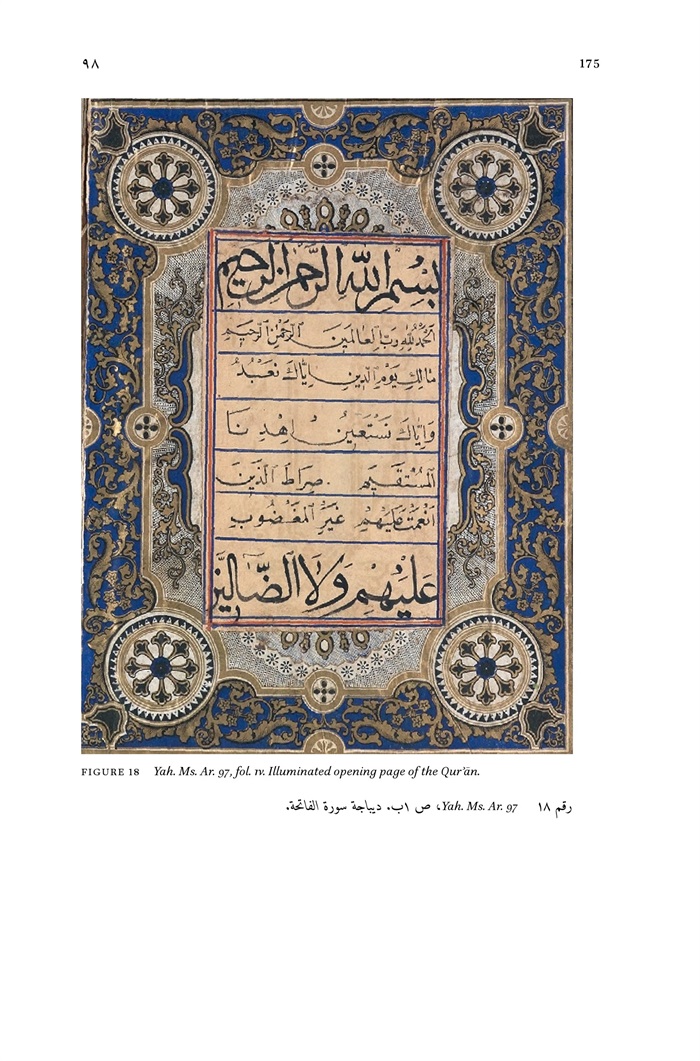 ٩٨ 175
بِسْمِ اللّٰهِ الرَّحْمٰنِ الرَّحِيمِ
اَلْحَمْدُ لِلّٰهِ رَبِّ الْعَالَمِينَ الرَّحْمٰنِ الرَّحِيمِ
مَالِكِ يَوْمِ الدِّينِ اِيَّاكَ نَعْبُدُ
وَاِيَّاكَ نَسْتَعِينُ اِهْدِنَا
الْمُسْتَقِيمَ صِرَاطَ الَّذِينَ
اَنْعَمْتَ عَلَيْهِمْ غَيْرِ الْمَغْضُوبِ
عَلَيْهِمْ وَلَا الضَّالِّينَ
FIGURE 18 Yah. Ms. Ar. 97, fol. 1v. Illuminated opening page of the Qurʾān.
رقم ١٨ Yah. Ms. Ar. 97، ص ١ب. ديباجة سورة الفاتحة.